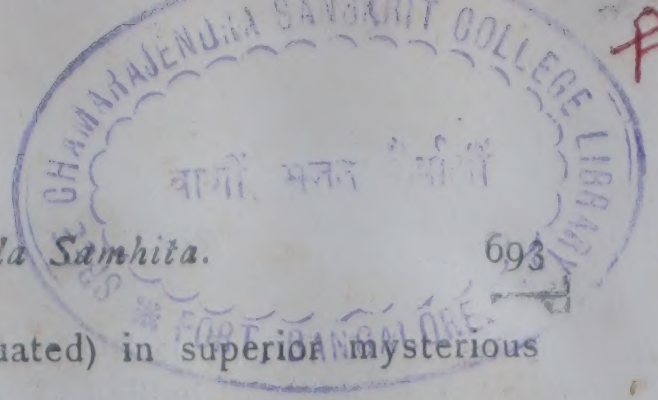 CHAMARAJENDRA SANSKRIT COLLEGE LIBRARY
FORT BANGALORE.
la Samhita. 693
uated) in superior mysterious